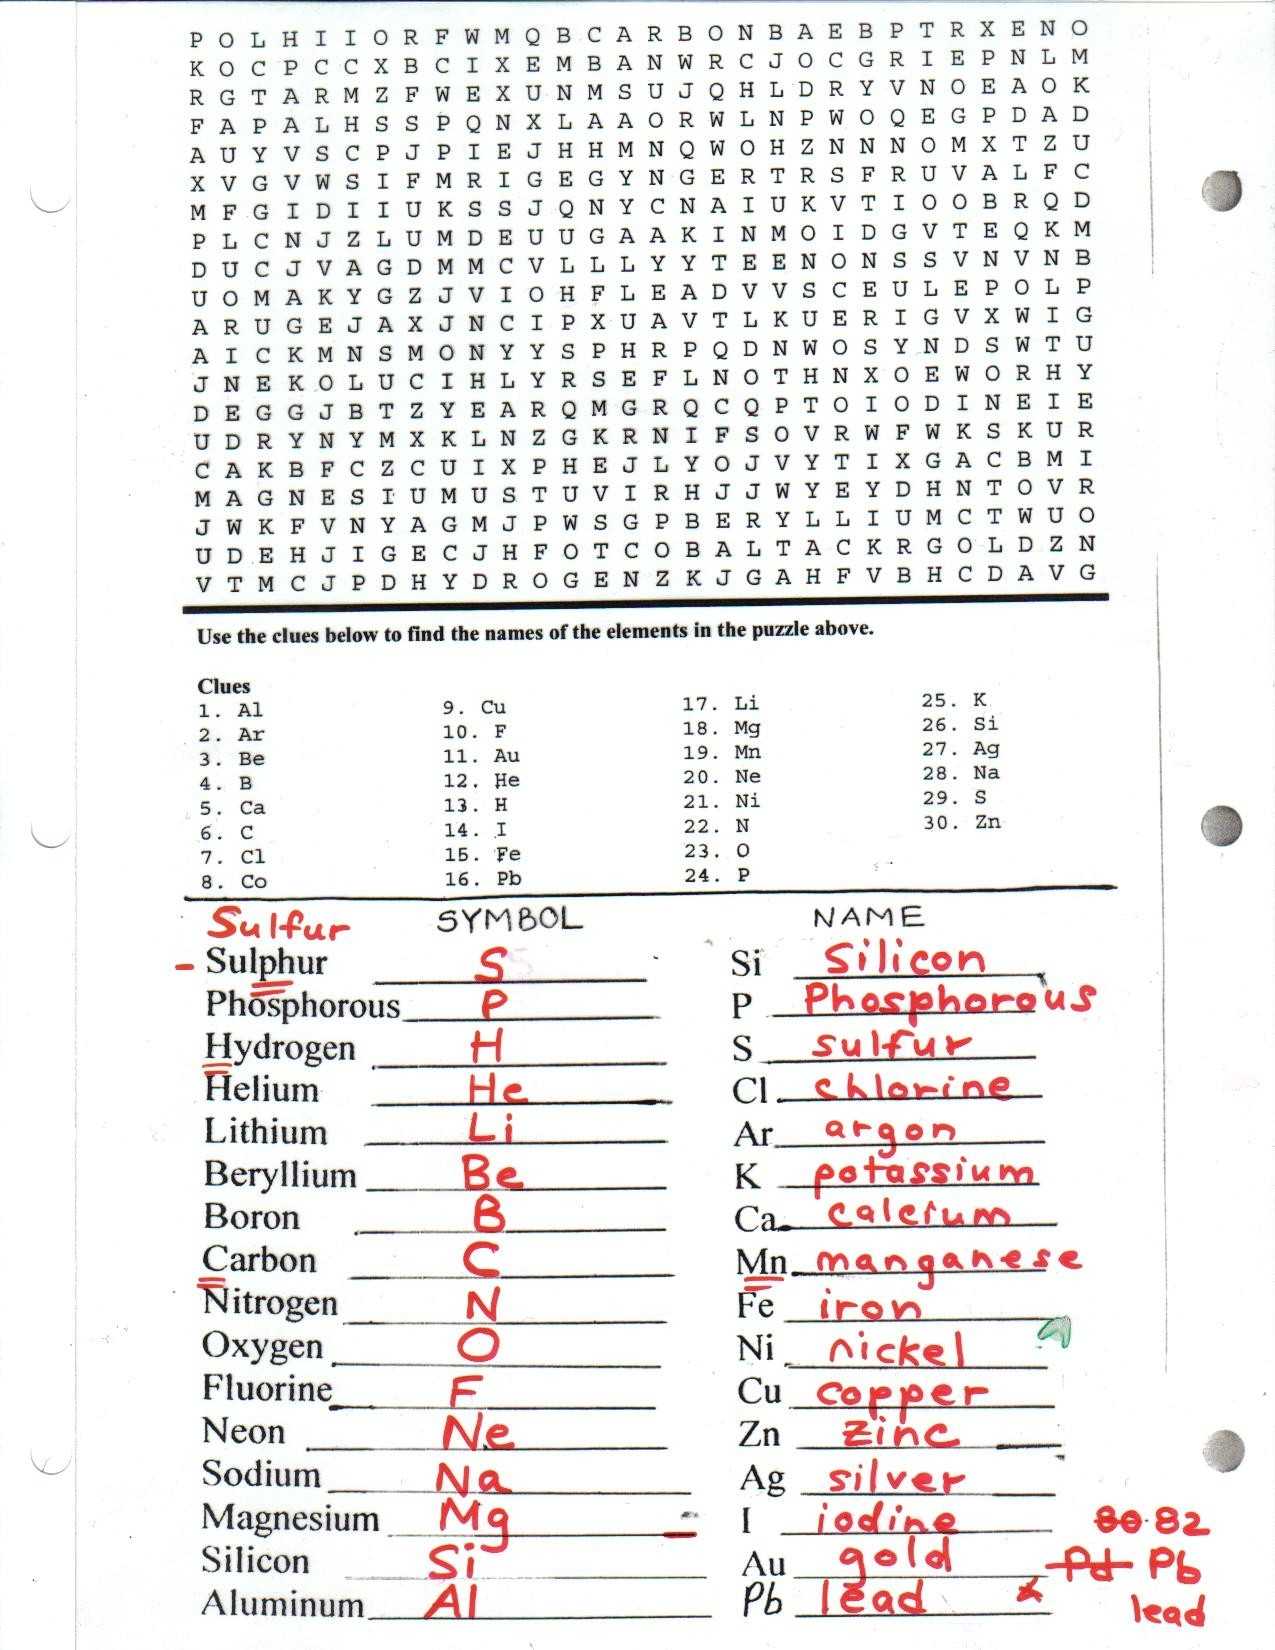 P O L H I I O R F W M Q B C A R B O N B A E B P T R X E N O
K O C P C C X B C I X E M B A N W R C J O C G R I E P N L M
R G T A R M Z F W E X U N M S U J Q H L D R Y V N O E A O K
F A P A L H S S P Q N X L A A O R W L N P W O Q E G P D A D
A U Y V S C P J P I E J H H M N Q W O H Z N N N O M X T Z U
X V G V W S I F M R I G E G Y N G E R T R S F R U V A L F C
M F G I D I I U K S S J Q N Y C N A I U K V T I O O B R Q D
P L C N J Z L U M D E U U G A A K I N M O I D G V T E Q K M
D U C J V A G D M M C V L L L Y Y T E E N O N S S V N V N B
U O M A K Y G Z J V I O H F L E A D V V S C E U L E P O L P
A R U G E J A X J N C I P X U A V T L K U E R I G V X W I G
A I C K M N S M O N Y Y S P H R P Q D N W O S Y N D S W T U
J N E K O L U C I H L Y R S E F L N O T H N X O E W O R H Y
D E G G J B T Z Y E A R Q M G R Q C Q P T O I O D I N E I E
U D R Y N Y M X K L N Z G K R N I F S O V R W F W K S K U R
C A K B F C Z C U I X P H E J L Y O J V Y T I X G A C B M I
M A G N E S I U M U S T U V I R H J J W Y E Y D H N T O V R
J W K F V N Y A G M J P W S G P B E R Y L L I U M C T W U O
U D E H J I G E C J H F O T C O B A L T A C K R G O L D Z N
V T M C J P D H Y D R O G E N Z K J G A H F V B H C D A V G
Use the clues below to find the names of the elements in the puzzle above.
Clues
1. Al 9. Cu 17. Li 25. K
2. Ar 10. F 18. Mg 26. Si
3. Be 11. Au 19. Mn 27. Ag
4. B 12. He 20. Ne 28. Na
5. Ca 13. H 21. Ni 29. S
6. C 14. I 22. N 30. Zn
7. Cl 15. Fe 23. O
8. Co 16. Pb 24. P
Sulfur SYMBOL NAME
- Sulphur S Si Silicon
Phosphorous P P Phosphorous
Hydrogen H S sulfur
Helium He Cl chlorine
Lithium Li Ar argon
Beryllium Be K potassium
Boron B Ca calcium
Carbon C Mn manganese
Nitrogen N Fe iron
Oxygen O Ni nickel
Fluorine F Cu copper
Neon Ne Zn zinc
Sodium Na Ag silver
Magnesium Mg I iodine 80 82
Silicon Si Au gold Pd Pb
Aluminum Al Pb lead lead